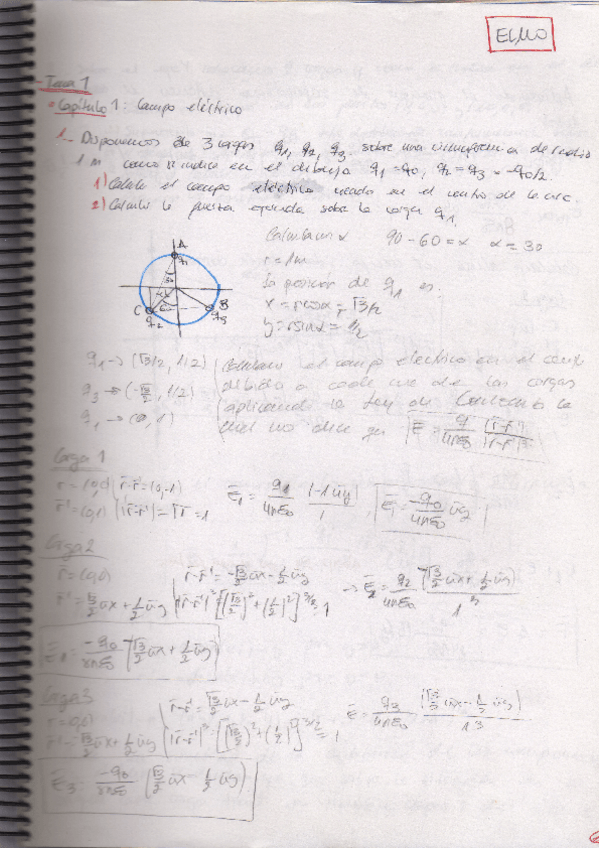 ELMO
Tema 1
Capítulo 1: Campo eléctrico
1- Disponemos de 3 cargas q1, q2, q3 sobre una circunferencia de radio
1 m como se indica en el dibujo q1 = q0, q2 = q3 = -q0/2.
1) Calcule el campo eléctrico creado en el centro de la circ.
2) Calcule la fuerza ejercida sobre la carga q1.
A
q1
C
q2
B
q3
Calculamos α 90 - 60 = α α = 30
r = 1m
la posición de q1 es:
x = r cos α = √3/2
y = r sin α = 1/2
q1 → (√3/2, 1/2)
q3 → (-√3/2, 1/2)
q1 → (0, 1)
Calculamos el campo eléctrico en el centro
debido a cada una de las cargas
aplicando la ley de Coulomb la
cual nos dice que E = q/4πε0 (r-r')/|r-r'|³
Carga 1
r = (0,0) r-r' = (0,-1)
r' = (0,1) |r-r'| = √1 = 1
E1 = q1/4πε0 (-1 uy)/1 , E1 = -q0/4πε0 uy
Carga 2
r = (0,0) r-r' = -√3/2 ux - 1/2 uy
r' = √3/2 ux + 1/2 uy |r-r'|³ = [(√3/2)² + (1/2)²]^3/2 = 1
→ E2 = q2/4πε0 (√3/2 ux + 1/2 uy)/1³
E1 = -q0/4πε0 (√3/2 ux + 1/2 uy)
Carga 3
r = (0,0) r-r' = √3/2 ux - 1/2 uy
r' = -√3/2 ux + 1/2 uy |r-r'|³ = [(√3/2)² + (1/2)²]^3/2 = 1
E = q3/4πε0 (√3/2 ux - 1/2 uy)/1³
E3 = -q0/4πε0 (√3/2 ux - 1/2 uy)